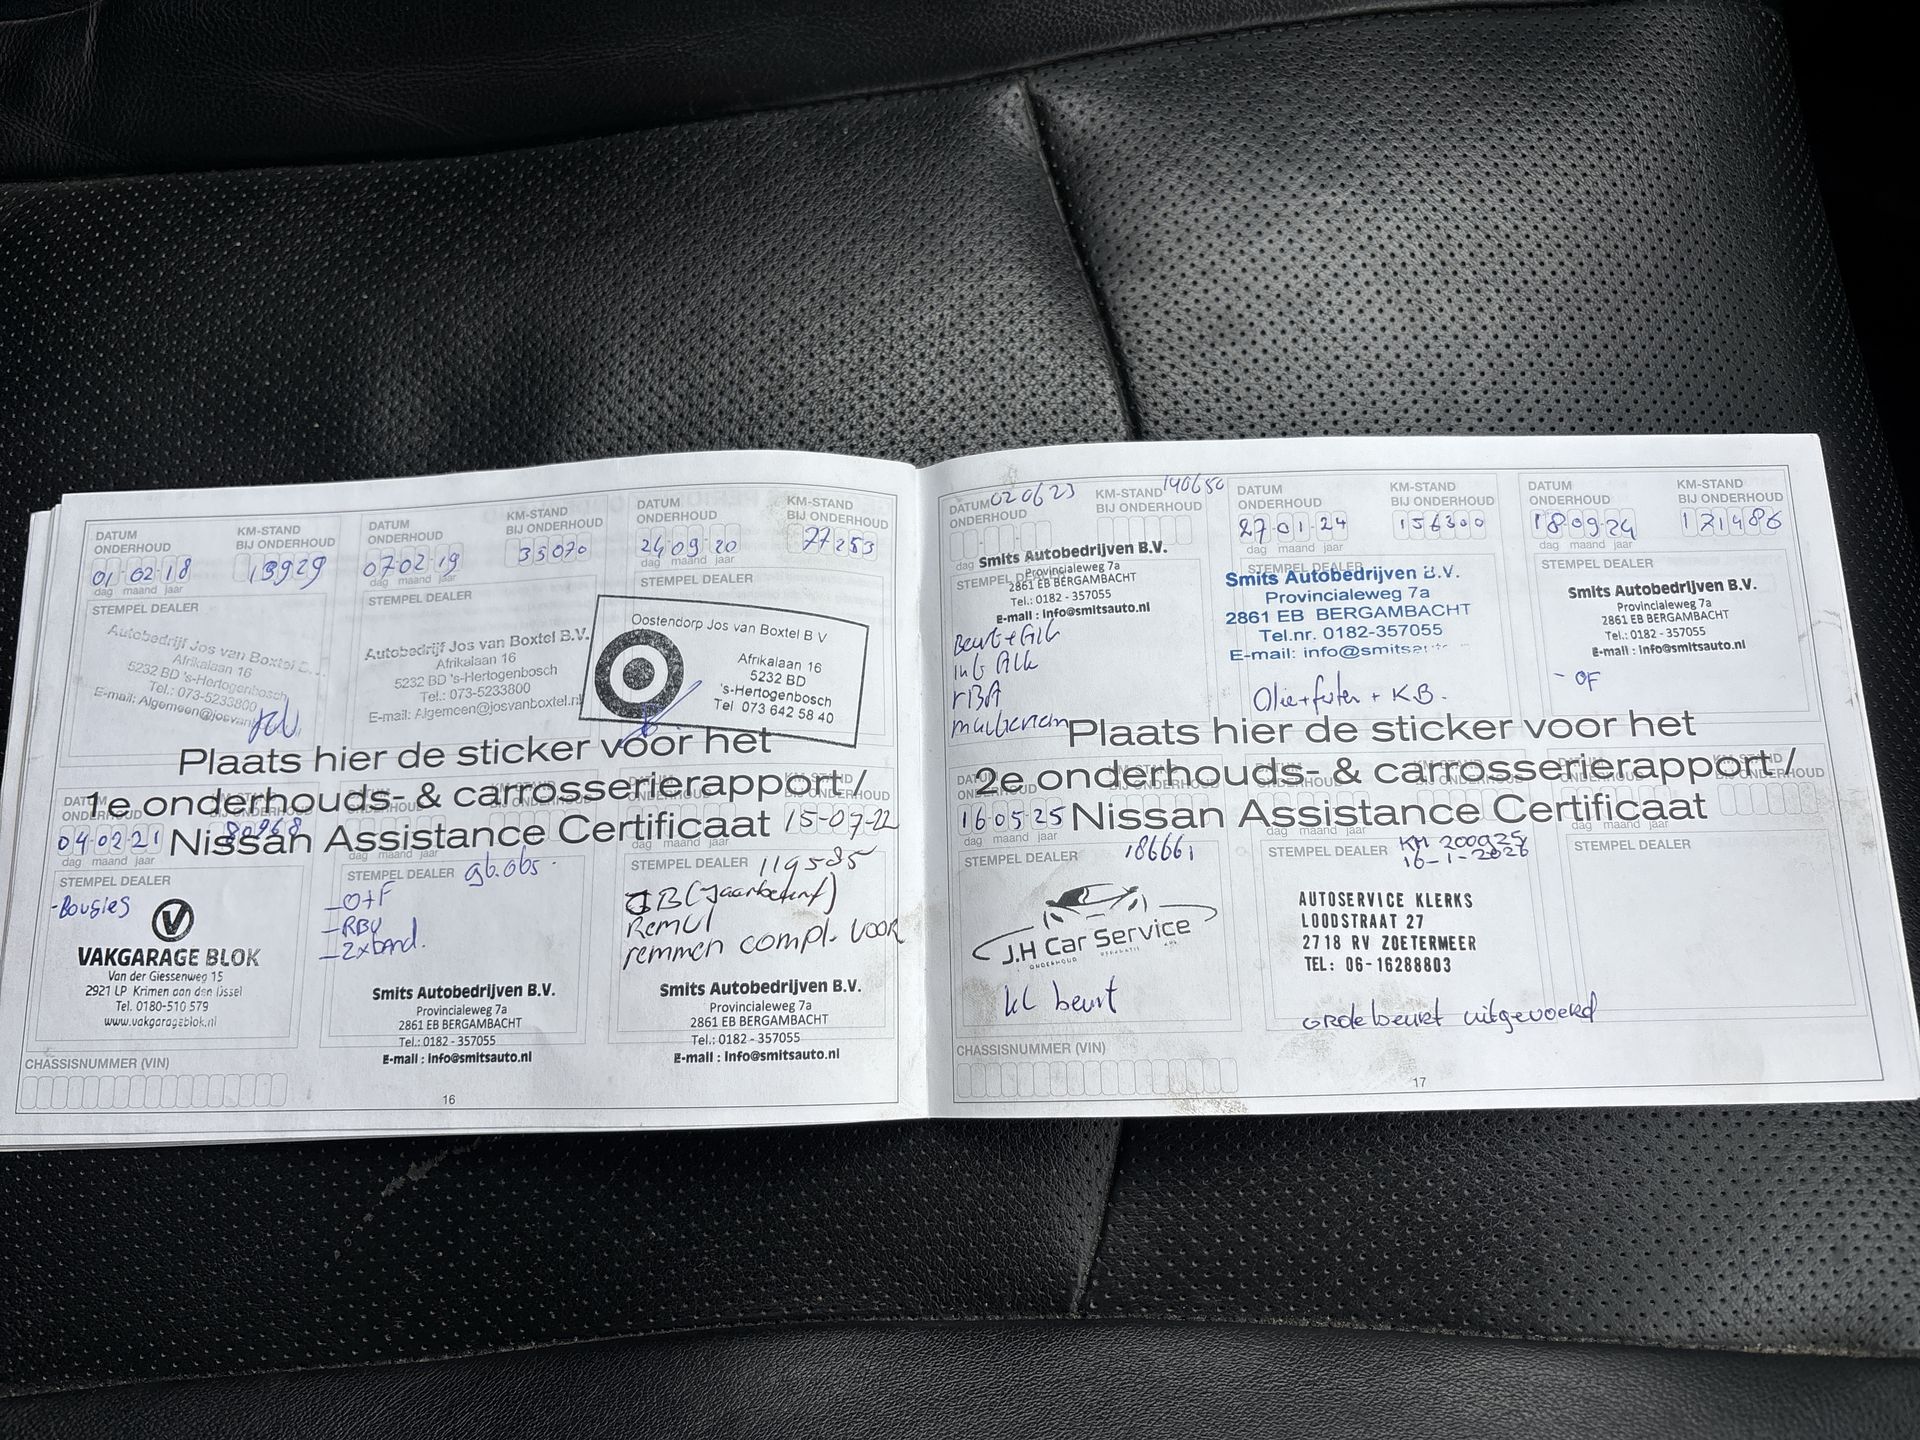 DATUM ONDERHOUD
KM-STAND BIJ ONDERHOUD
01 02 18
13929
dag maand jaar
STEMPEL DEALER
Autobedrijf Jos van Boxtel B.V.
Afrikalaan 16
5232 BD 's-Hertogenbosch
Tel.: 073-5233800
E-mail: Algemeen@josvan
DATUM ONDERHOUD
KM-STAND BIJ ONDERHOUD
07 02 19
35070
dag maand jaar
STEMPEL DEALER
Autobedrijf Jos van Boxtel B.V.
Afrikalaan 16
5232 BD 's-Hertogenbosch
Tel.: 073-5233800
E-mail: Algemeen@josvanboxtel.nl
DATUM ONDERHOUD
KM-STAND BIJ ONDERHOUD
24 09 20
77253
dag maand jaar
STEMPEL DEALER
Oostendorp Jos van Boxtel B V
Afrikalaan 16
5232 BD
's-Hertogenbosch
Tel 073 642 58 40
Plaats hier de sticker voor het
1e onderhouds- & carrosserierapport /
Nissan Assistance Certificaat
04 02 21
80968
dag maand jaar
STEMPEL DEALER
- Bougies
VAKGARAGE BLOK
Van der Giessenweg 15
2921 LP Krimen aan den IJssel
Tel. 0180-510 579
www.vakgarageblok.nl
STEMPEL DEALER
96.065.
- O+F
- RBV
- 2x band.
Smits Autobedrijven B.V.
Provincialeweg 7a
2861 EB BERGAMBACHT
Tel.: 0182 - 357055
E-mail : Info@smitsauto.nl
15-07-22
STEMPEL DEALER
119585
GB (jaarbeurt)
Remul
remmen compl. voor
Smits Autobedrijven B.V.
Provincialeweg 7a
2861 EB BERGAMBACHT
Tel.: 0182 - 357055
E-mail : Info@smitsauto.nl
CHASSISNUMMER (VIN)
16
DATUM ONDERHOUD
020623
KM-STAND BIJ ONDERHOUD
140650
dag
STEMPEL DEALER
Smits Autobedrijven B.V.
Provincialeweg 7a
2861 EB BERGAMBACHT
Tel.: 0182 - 357055
E-mail : Info@smitsauto.nl
rBA
DATUM ONDERHOUD
KM-STAND BIJ ONDERHOUD
27 01 24
156300
dag maand jaar
STEMPEL DEALER
Smits Autobedrijven B.V.
Provincialeweg 7a
2861 EB BERGAMBACHT
Tel.nr. 0182-357055
E-mail: info@smitsa
Olie+filter + K.B.
DATUM ONDERHOUD
KM-STAND BIJ ONDERHOUD
18 09 24
171486
dag maand jaar
STEMPEL DEALER
Smits Autobedrijven B.V.
Provincialeweg 7a
2861 EB BERGAMBACHT
Tel.: 0182 - 357055
E-mail : Info@smitsauto.nl
- OF
Plaats hier de sticker voor het
2e onderhouds- & carrosserierapport /
Nissan Assistance Certificaat
16 05 25
dag maand jaar
STEMPEL DEALER
186661
J.H Car Service
ONDERHOUD
kl beurt
dag maand jaar
STEMPEL DEALER
KM 200925
16-1-2026
AUTOSERVICE KLERKS
LOODSTRAAT 27
2718 RV ZOETERMEER
TEL: 06-16288803
Grote beurt uitgevoerd
dag maand jaar
STEMPEL DEALER
CHASSISNUMMER (VIN)
17